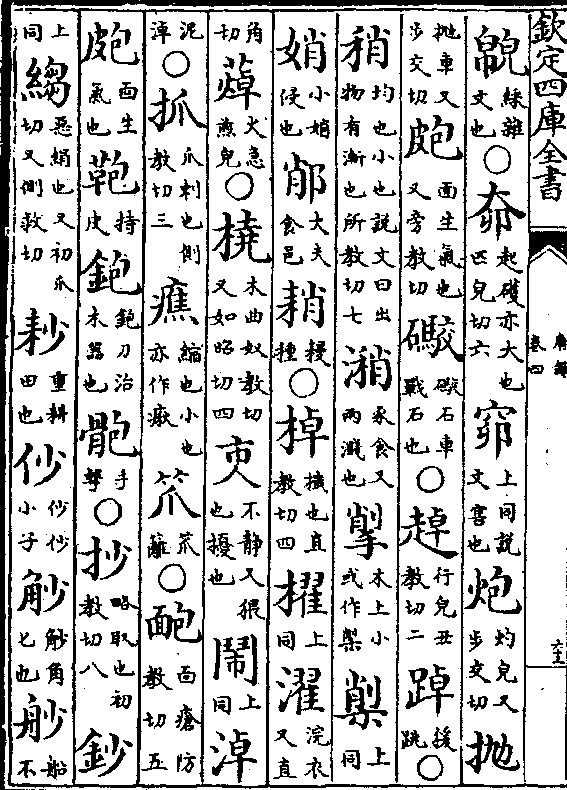 欽定四庫全書
廣韻
卷四
六五
綵雜文也○奅起礮亦大也匹皃切六窌上同説文窖也炮灼皃又步交切拋
拋車又步交切皰面生氣也又旁教切礮礮石車戰石也○趠行皃丑教切二踔猨跳○
稍均也小也説文曰出物有漸也所教切七潲豕食又雨濺也揱木上小或作上同
娋小娋侵也大夫食邑種○棹檝也直教切四櫂上同濯浣衣又直
角切火急煎皃○橈木曲奴教切又如昭切四不靜又猥也擾也鬧上同淖
泥淖○抓爪刺也側教切三癄縮也小也亦作笊笊籬○靤面瘡防教切五
皰面生氣也鞄持皮鉋鉋刀治木器也骲手擊○抄略取也初教切八鈔
上同縐惡絹也又初爪切又側救切耖重耕田也仯仯仯小子觘觘角匕也䑲船不